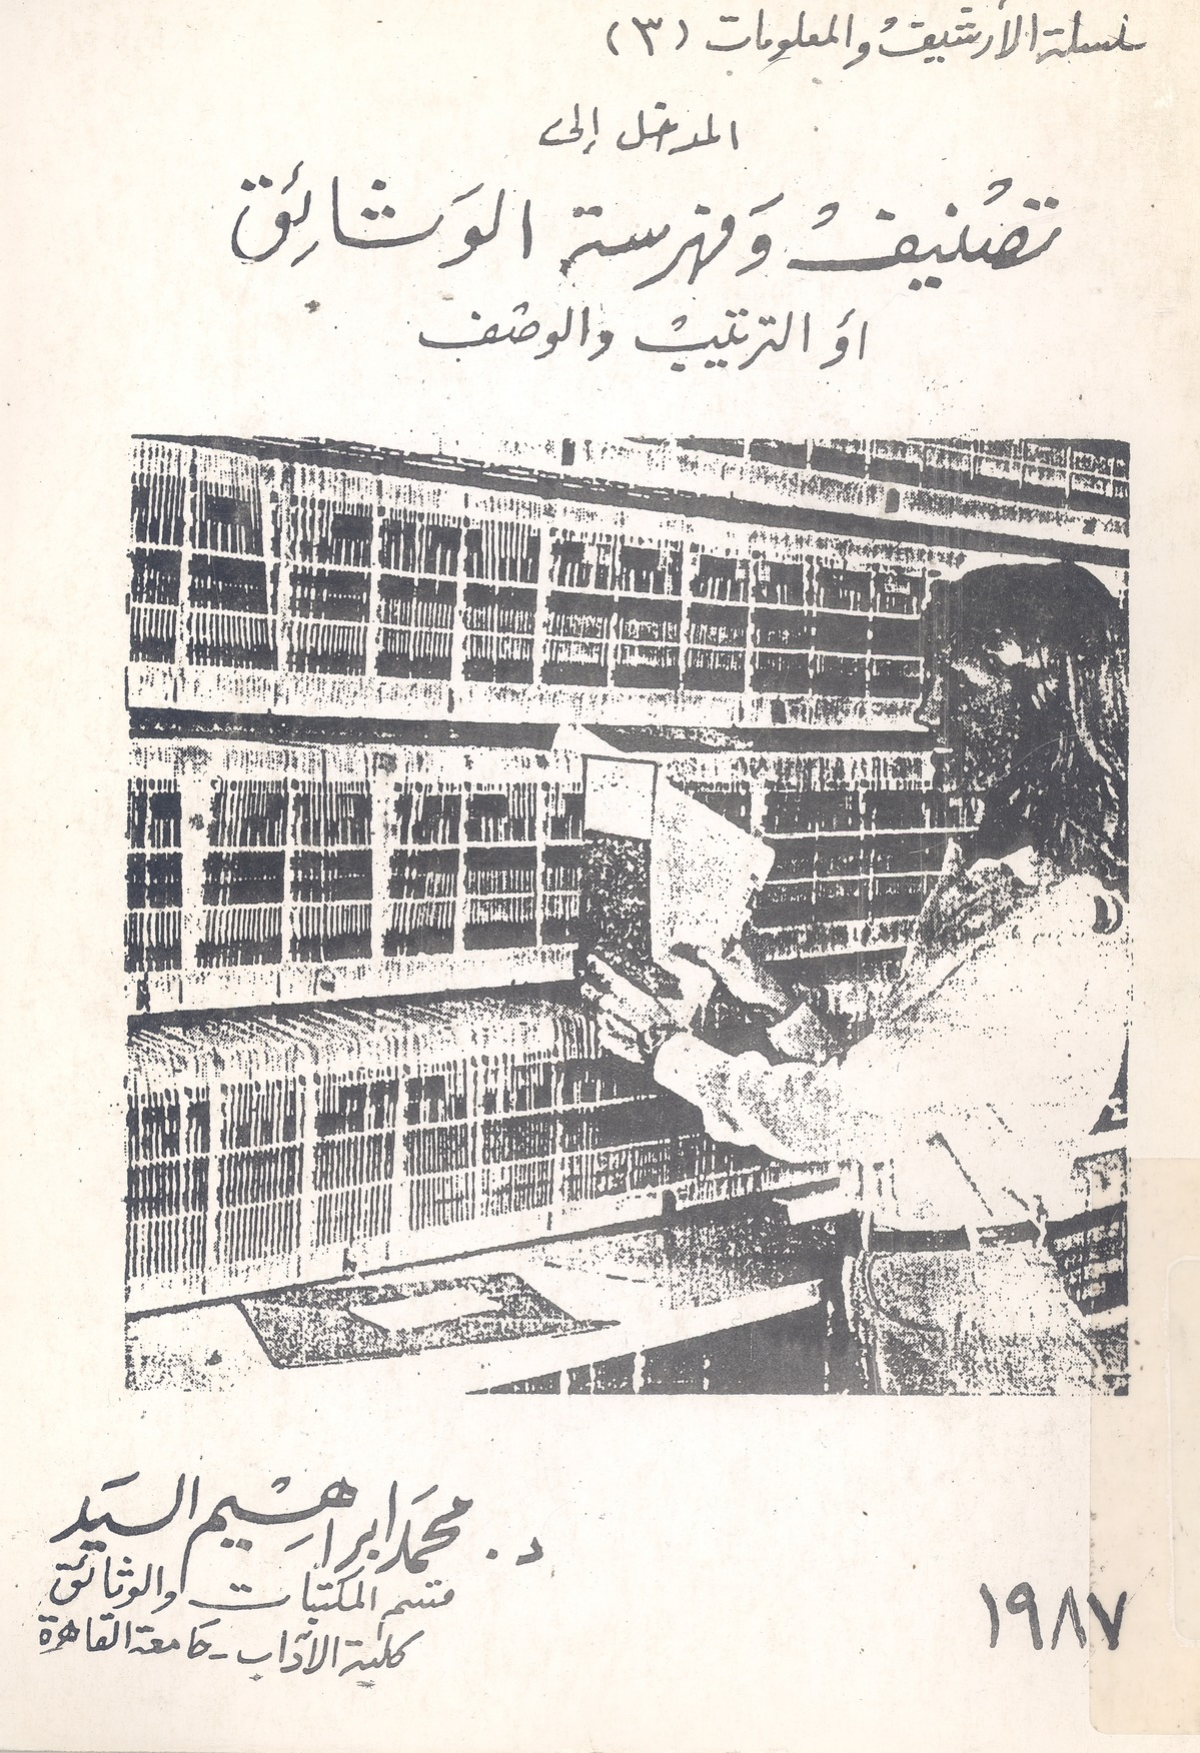 سلسلة الأرشيف والمعلومات (٣)
المدخل إلى
تصنيف وفهرسة الوثائق
أو الترتيب والوصف
د. محمد ابراهيم السيد
قسم المكتبات والوثائق
كلية الآداب - جامعة القاهرة
١٩٨٧